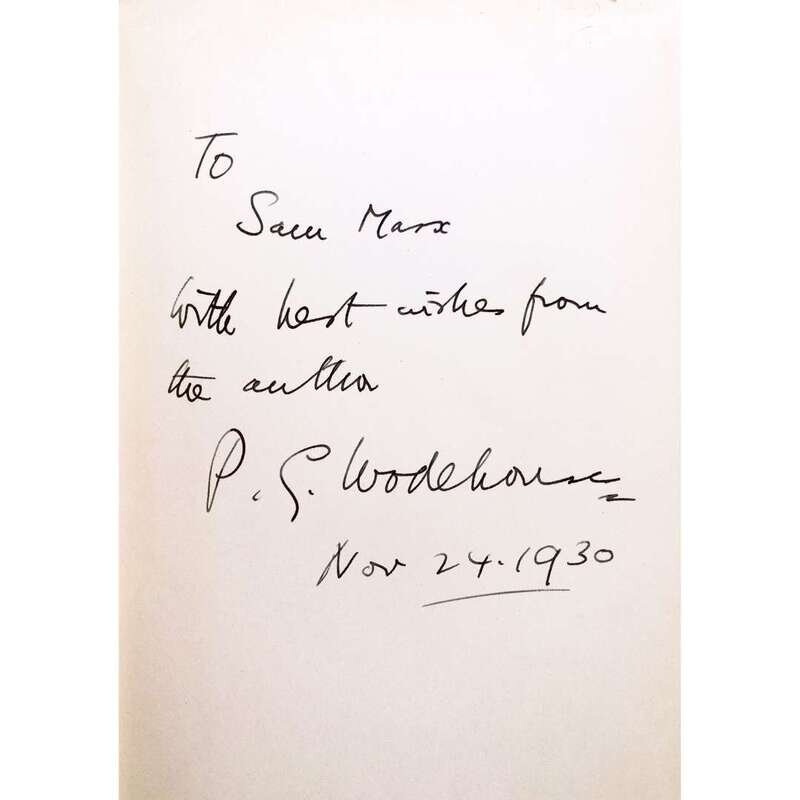 To
Sam Marx
With best wishes from
the author
P. G. Wodehouse
Nov 24.1930